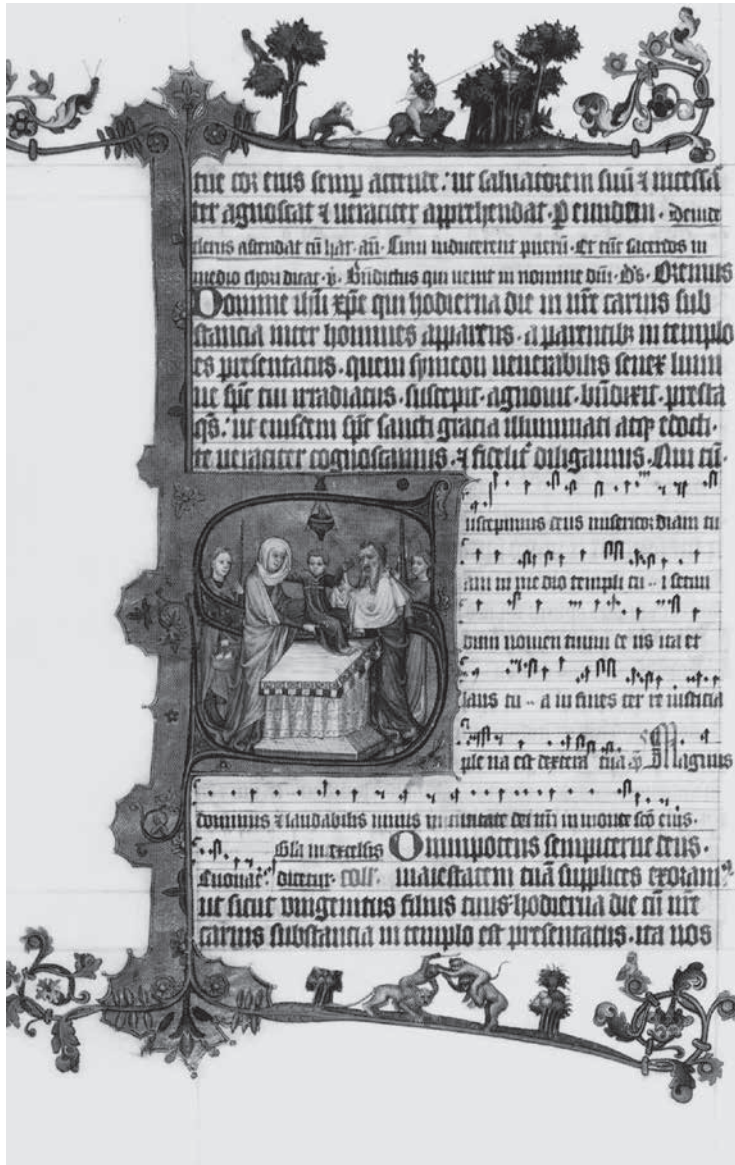 tue cor eius semp accende. ut saluatorem suu & incessan
ter agnoscat & ueraciter apprehendat. p eundem. Deinde
clerus ascendat cu hac. an. Cum inducerent pueru. Et tuc sacerdos in
medio chori dicat. v. Bndictus qui uenit in nomine dni. Ds. Oremus
Domine ihu xpe qui hodierna die in nre carnis sub
stancia inter homines apparens. a parentib in templo
es presentatus. quem symeon uenerabilis senex lumi
ne spc tui irradiatus. suscepit. agnouit. bndixit. presta
qs. ut eiusdem spc sancti gracia illuminati atq edocti.
te ueraciter cognoscamus. & fidelit diligamus. Qui cu.
Suscepimus deus misericordiam tu
am in me dio templi tu - i secun
dum nomen tuum de us ita et
laus tu - a in fines ter re iusticia
ple na est dextera tua ps Magnus
dominus & laudabilis nimis in ciuitate dei nri in monte sco eius.
Gla in excelsis Omnipotens sempiterne deus.
Euouae. dicetur. coll. maiestatem tua supplices exoram
ut sicut unigenitus filius tuus hodierna die cu nre
carnis substancia in templo est presentatus. ita nos